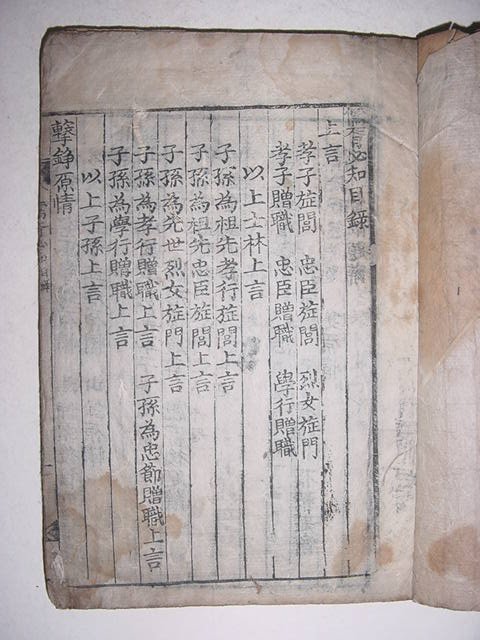 胥必知目錄
上言
孝子旌閭 忠臣旌閭 烈女旌門
孝子贈職 忠臣贈職 學行贈職
以上士林上言
子孫為祖先孝行旌閭上言
子孫為祖先忠臣旌閭上言
子孫為先世烈女旌門上言
子孫為孝行贈職上言 子孫為忠節贈職上言
子孫為學行贈職上言
以上子孫上言
擊錚原情